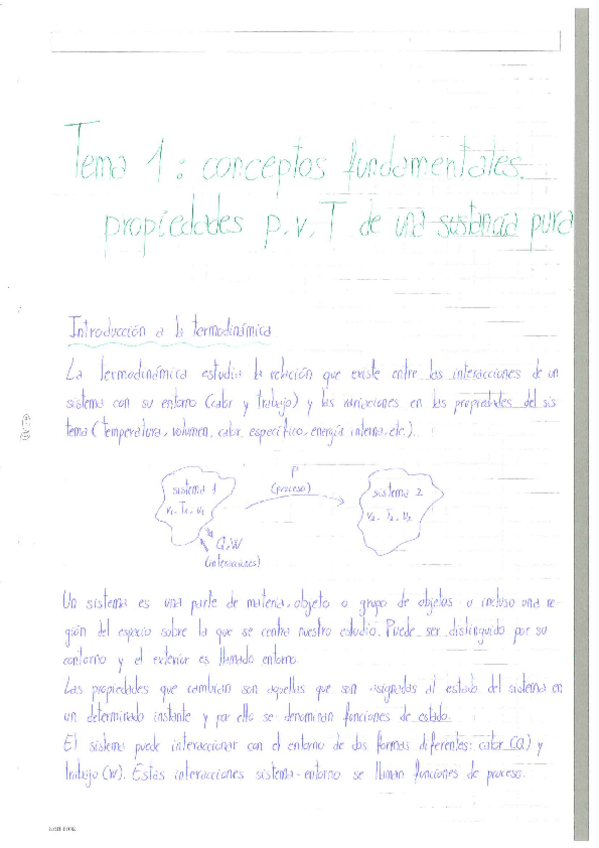 Tema 1: conceptos fundamentales.
propiedades p.v.T de una sustancia pura
Introducción a la termodinámica
La Termodinámica estudia la relación que existe entre las interacciones de un
sistema con su entorno (calor y trabajo) y las variaciones en las propiedades del sis
tema (temperatura, volumen, calor específico, energía interna, etc.).
sistema 1
v1, T1, u1
P
(proceso)
sistema 2
v2, T2, u2
Q,W
(interacciones)
Un sistema es una parte de materia, objeto o grupo de objetos o incluso una re-
gión del espacio sobre la que se centra nuestro estudio. Puede ser distinguido por su
contorno y el exterior es llamado entorno.
Las propiedades que cambian son aquellas que son asignadas al estado del sistema en
un determinado instante y por ello se denominan funciones de estado.
El sistema puede interaccionar con el entorno de dos formas diferentes: calor (Q) y
trabajo (W). Estas interacciones sistema-entorno se llaman funciones de proceso.